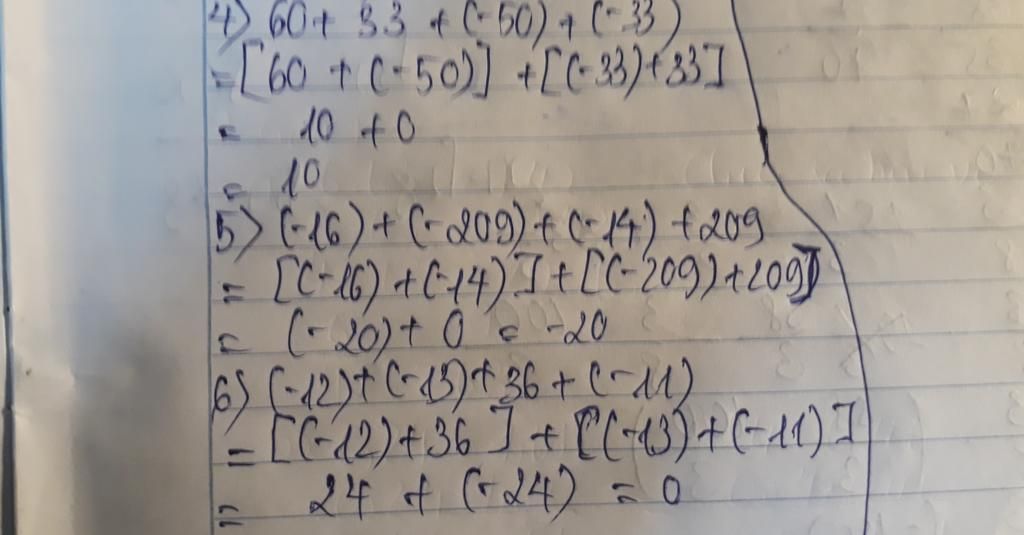 4) 60 + 33 + (-50) + (-33)
= [60 + (-50)] + [(-33) + 33]
= 10 + 0
= 10
5) (-16) + (-209) + (-14) + 209
= [(-16) + (-14)] + [(-209) + 209]
= (-20) + 0 = -20
6) (-12) + (-13) + 36 + (-11)
= [(-12) + 36] + [(-13) + (-11)]
= 24 + (-24) = 0